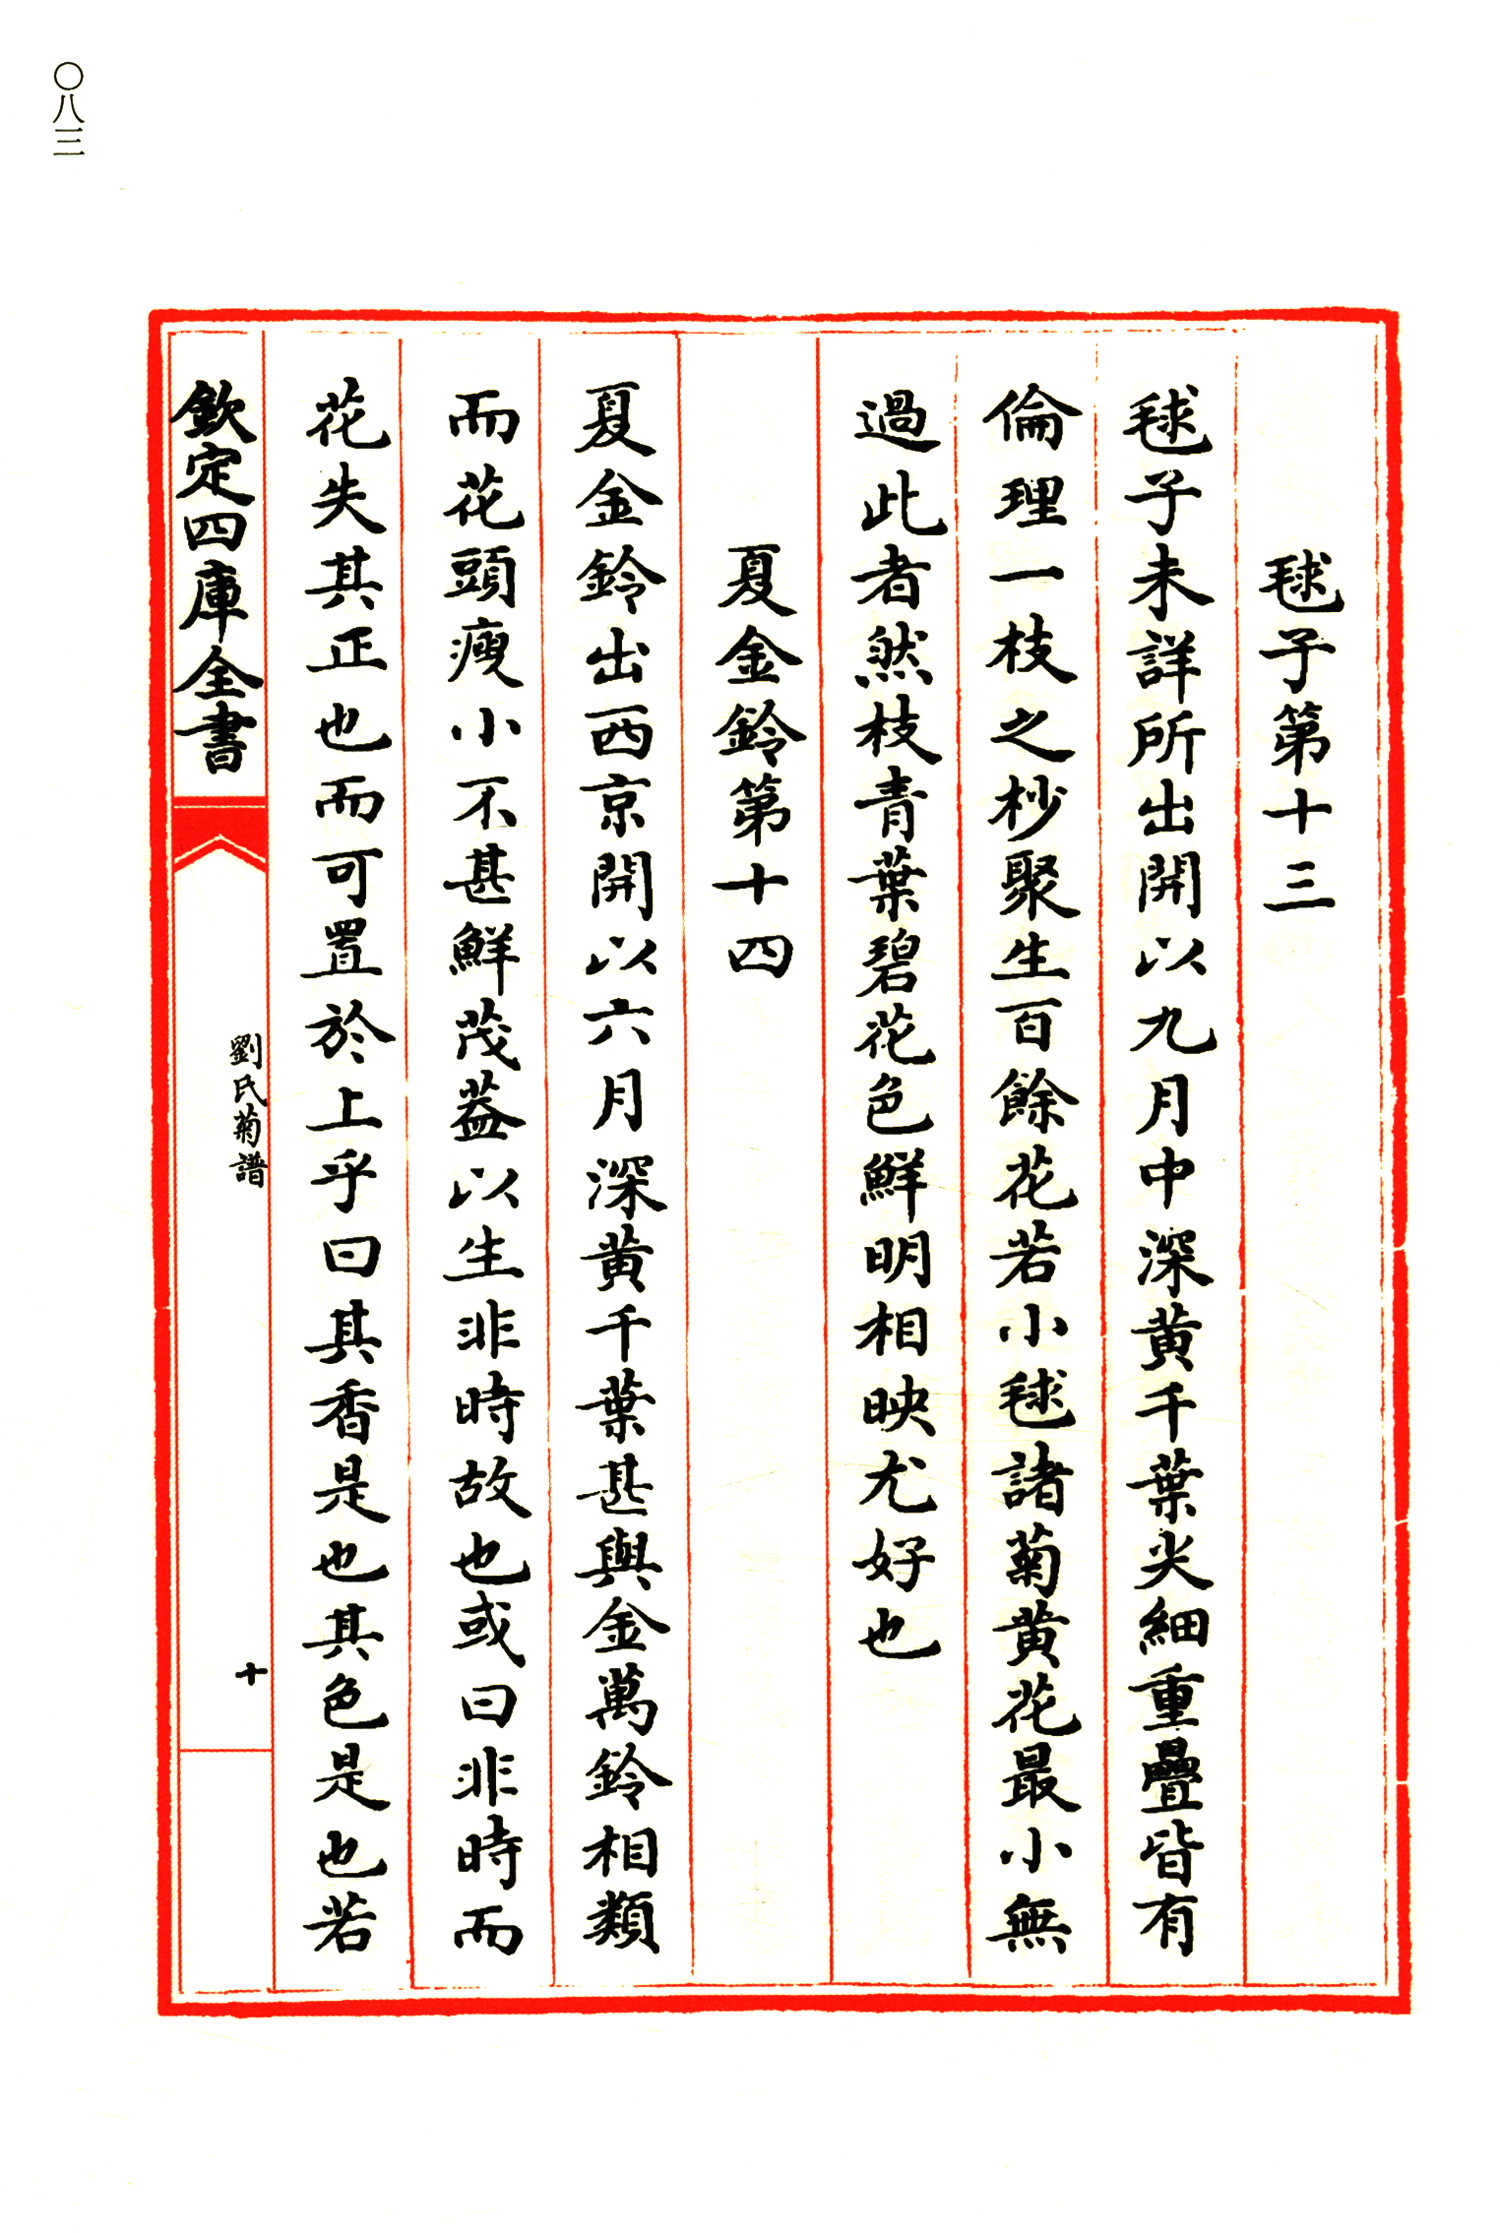 毬子第十三
毬子未詳所出開以九月中深黄千葉尖細重疊皆有
倫理一枝之杪聚生百餘花若小毬諸菊黄花最小無
過此者然枝青葉碧花色鮮明相映尤好也
夏金鈴第十四
夏金鈴出西京開以六月深黄千葉甚與金萬鈴相類
而花頭瘦小不甚鮮茂葢以生非時故也或曰非時而
花失其正也而可置於上乎曰其香是也其色是也若
欽定四庫全書
劉氏菊譜
十
〇八三